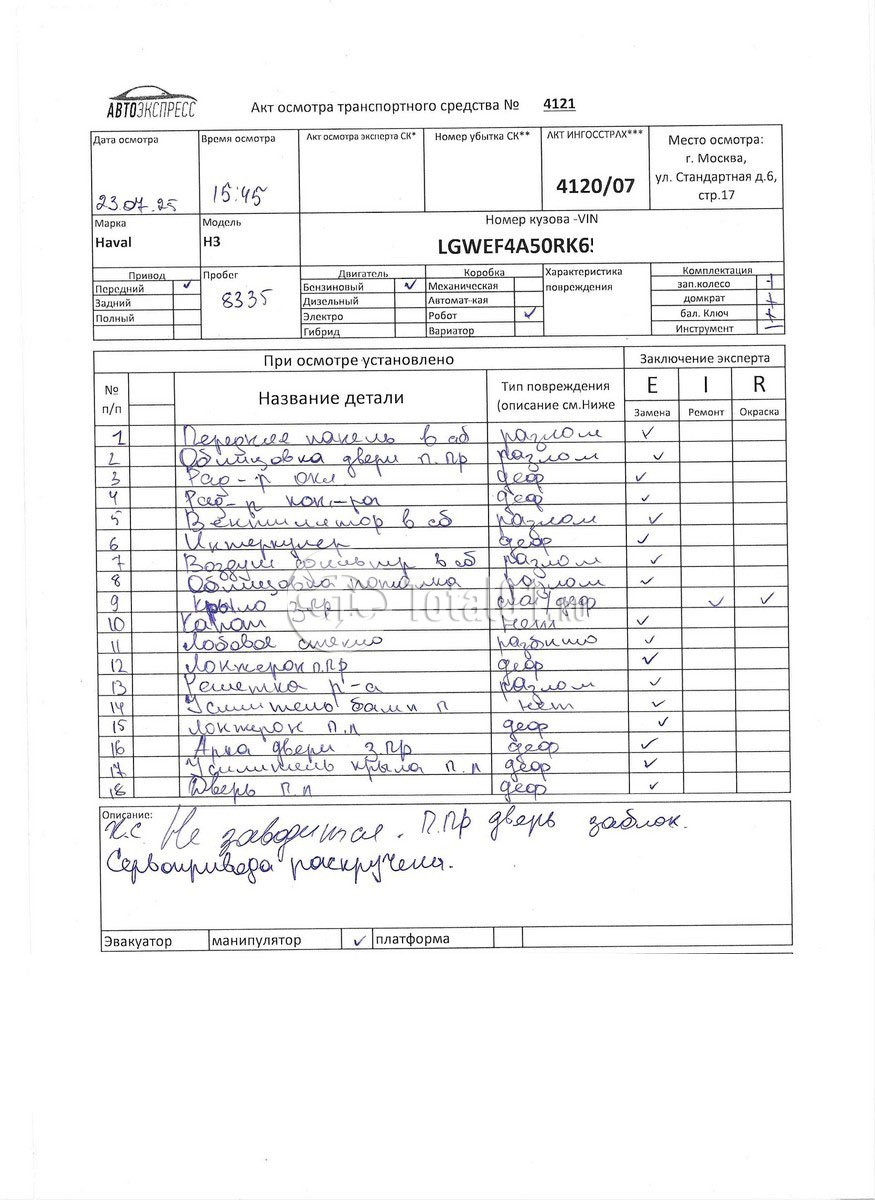 АВТОЭКСПРЕСС
Акт осмотра транспортного средства № 4121
Дата осмотра
23.07.25
Время осмотра
15:45
Акт осмотра эксперта СК*
Номер убытка СК**
АКТ ИНГОССТРАХ***
4120/07
Место осмотра:
г. Москва,
ул. Стандартная д.6,
стр.17
Марка
Haval
Модель
H3
Номер кузова -VIN
LGWEF4A50RK6!
Привод
Передний ✓
Задний
Полный
Пробег
8335
Двигатель
Бензиновый ✓
Дизельный
Электро
Гибрид
Коробка
Механическая
Автомат-кая
Робот ✓
Вариатор
Характеристика
повреждения
Комплектация
зап.колесо +
домкрат +
бал. Ключ +
Инструмент +
При осмотре установлено
Заключение эксперта
№
п/п
Название детали
Тип повреждения
(описание см.Ниже
E I R
Замена Ремонт Окраска
1 Передняя панель в сб разлом ✓
2 Облицовка двери п.пр разлом ✓
3 Рад-р охл деф ✓
4 Рад-р кон-ра деф ✓
5 Вентилятор в сб разлом ✓
6 Интеркулер деф ✓
7 Воздуш фильтр в сб разлом ✓
8 Облицовка потолка разлом ✓
9 Крыло з.пр деф ✓ ✓
10 Капот нет ✓
11 Лобовое стекло разбито ✓
12 Лонжерон п.пр деф ✓
13 Решетка р-а разлом ✓
14 Усилитель бамп п нет ✓
15 Лонжерон п.л деф ✓
16 Арка двери з.пр деф ✓
17 Усилитель крыла п.л деф ✓
18 Дверь п.л деф ✓
Описание:
Н.С. Не заводится. П.пр дверь заблок.
Сервопривода раскручена.
Эвакуатор манипулятор ✓ платформа
Total01.ru